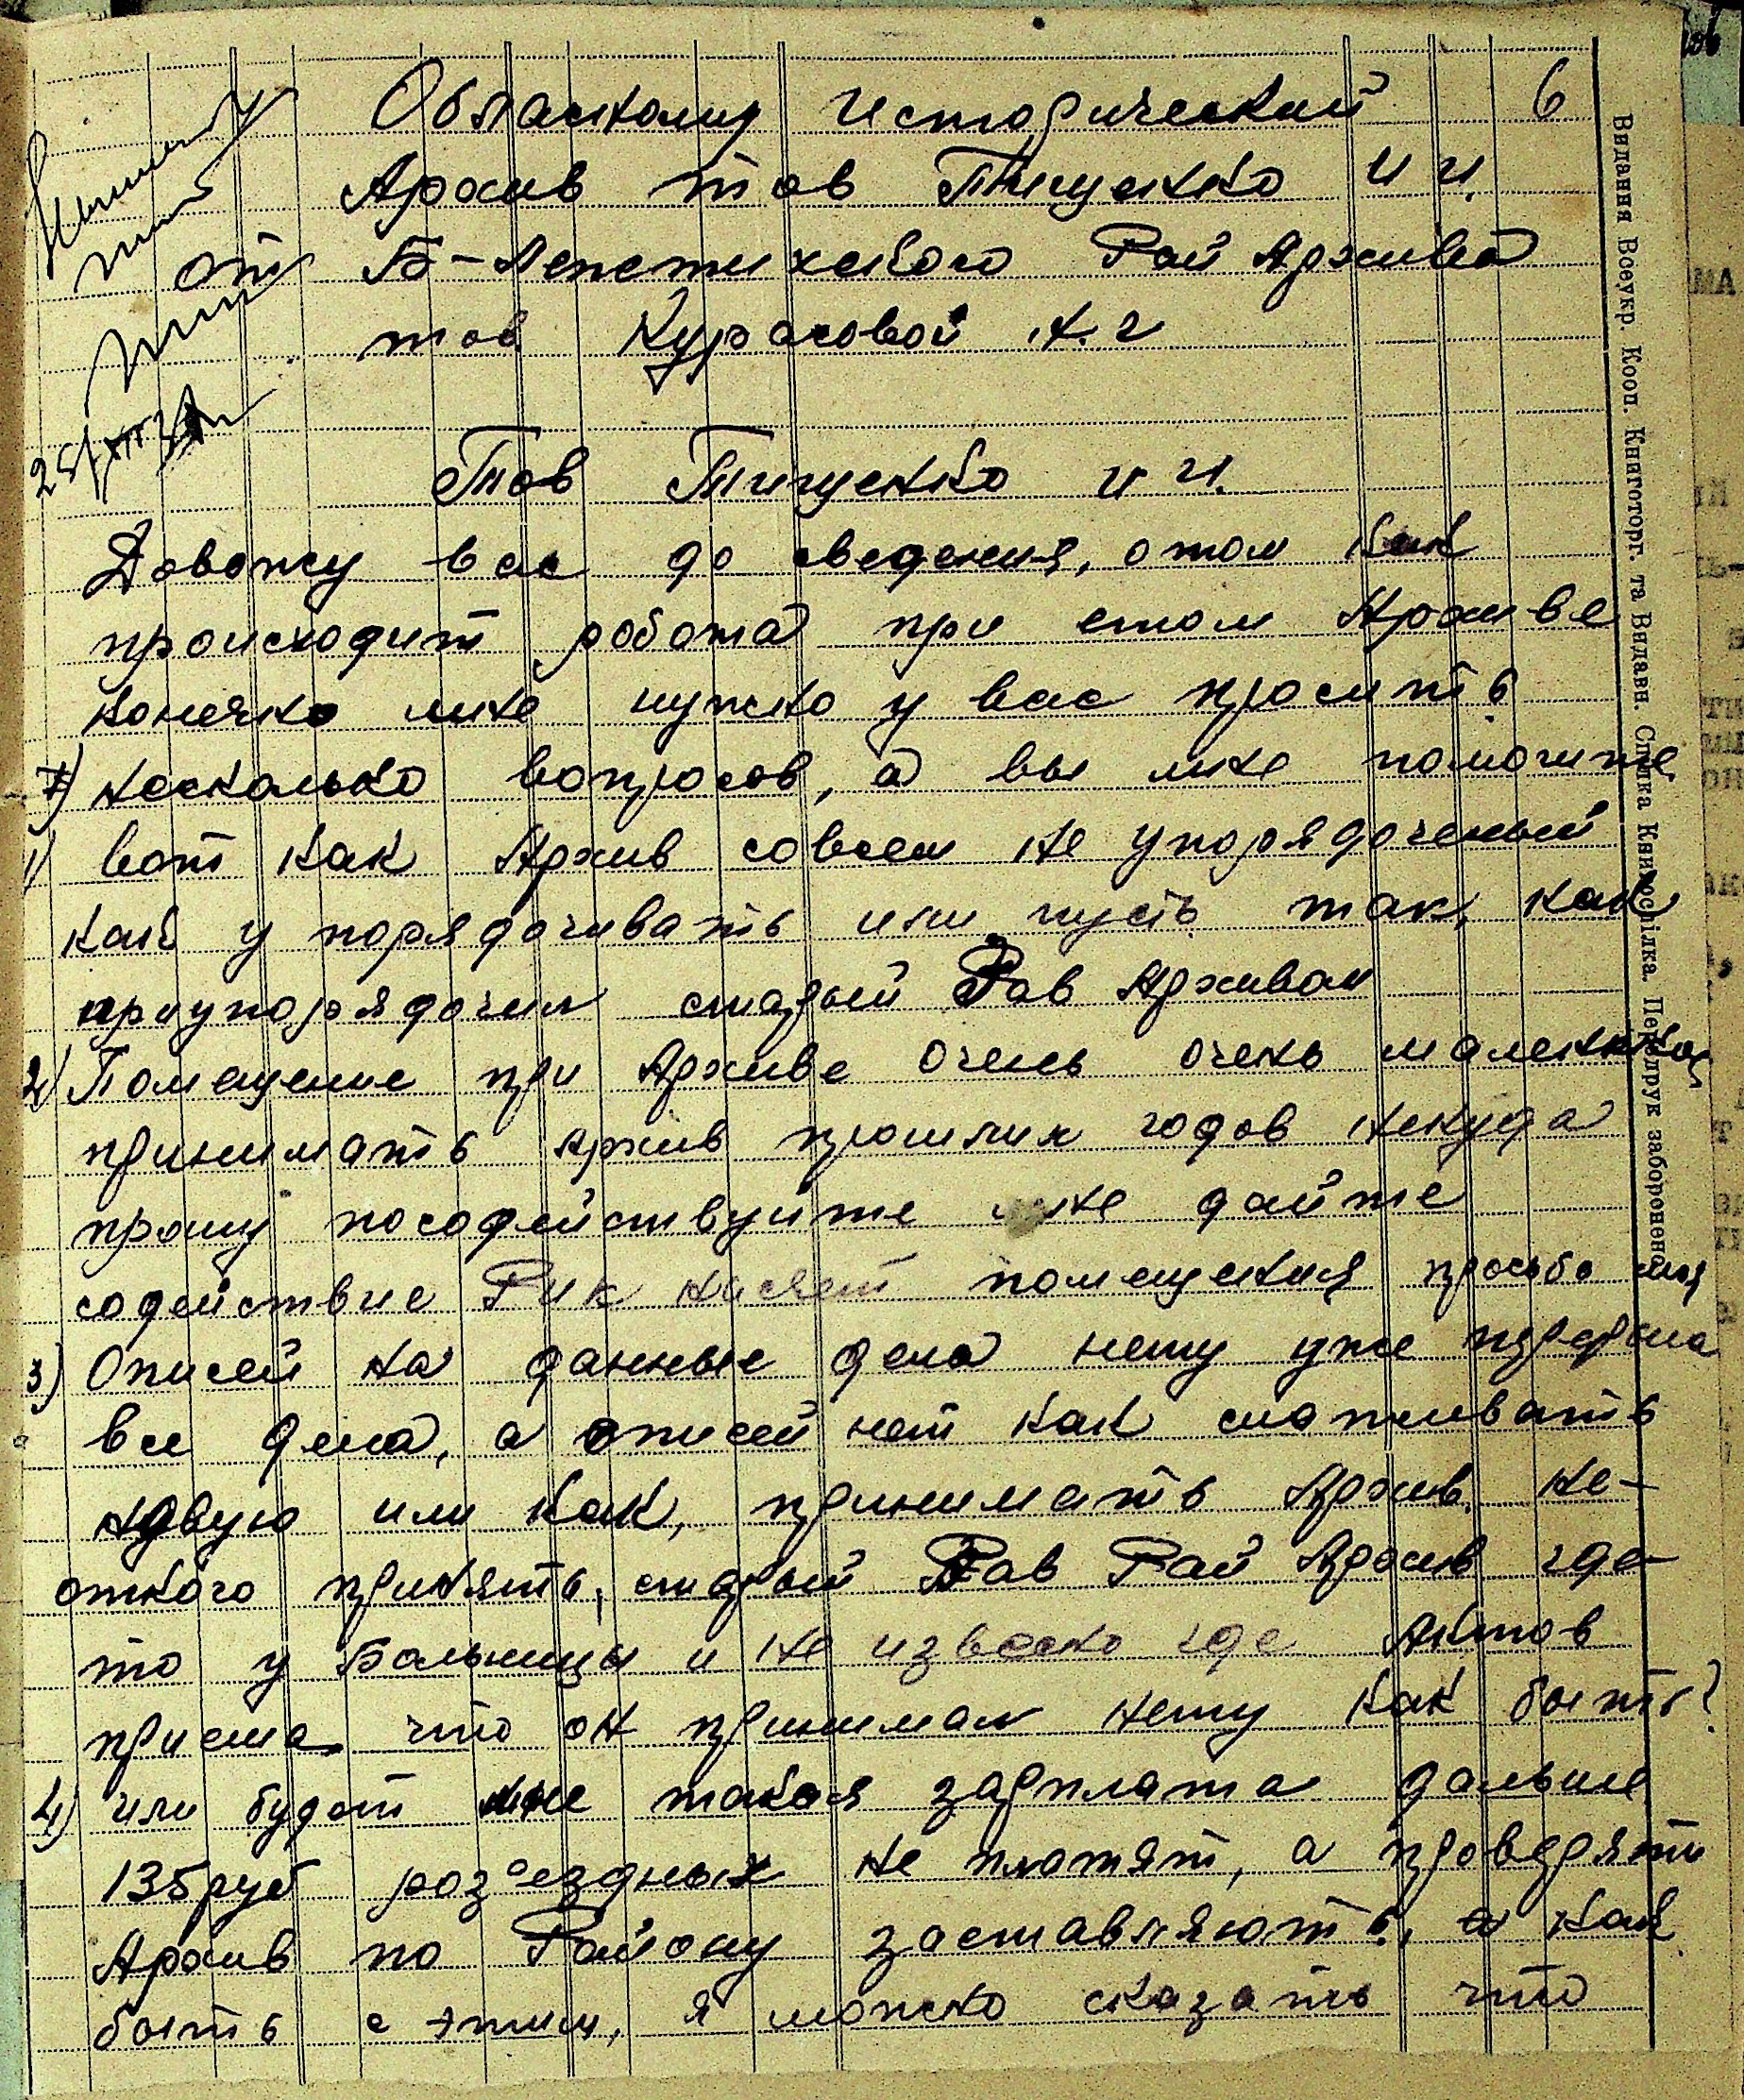 6
Областному исторический
Архив тов Тищенко И И.
от Б-Лепетихского Рай Архива
тов Курасовой Н. г
25/XII
Тов Тищенко и и.
Довожу вас до сведения, отом как
происходит робота при етом Архиве
конечно мне нужно у вас просить
несколько вопросов, а вы мне помогите
1) вот как Архив совсем не упорядоченый
как у порядочивать или пусть так, как
приупорядочил старый Зав Архивом
2) Помещение при Архиве очень очень маленькое
принимать Архив прошлих годов некуда
прошу посодействуйте мне дайте
содействие Рик насчет помещения прозьба моя
3) Описей на данные дела нету уже
все дела, а описей нет как
новую или как, принимать Архив не-
откого принять, старый Зав Рай Архив где-
то у Больницы и не извесно где Актов
приема что он принимал нету как быть?
4) или будет мне такая зарплата дальше
135 руб роз'ездных не платят, а проверять
Архив по Району заставляють, а как
быть с этим, я можно сказать что
Видання Всеукр. Кооп. Книготорг. та Видавн. Спілка Книгоспілка. Передрук заборонено